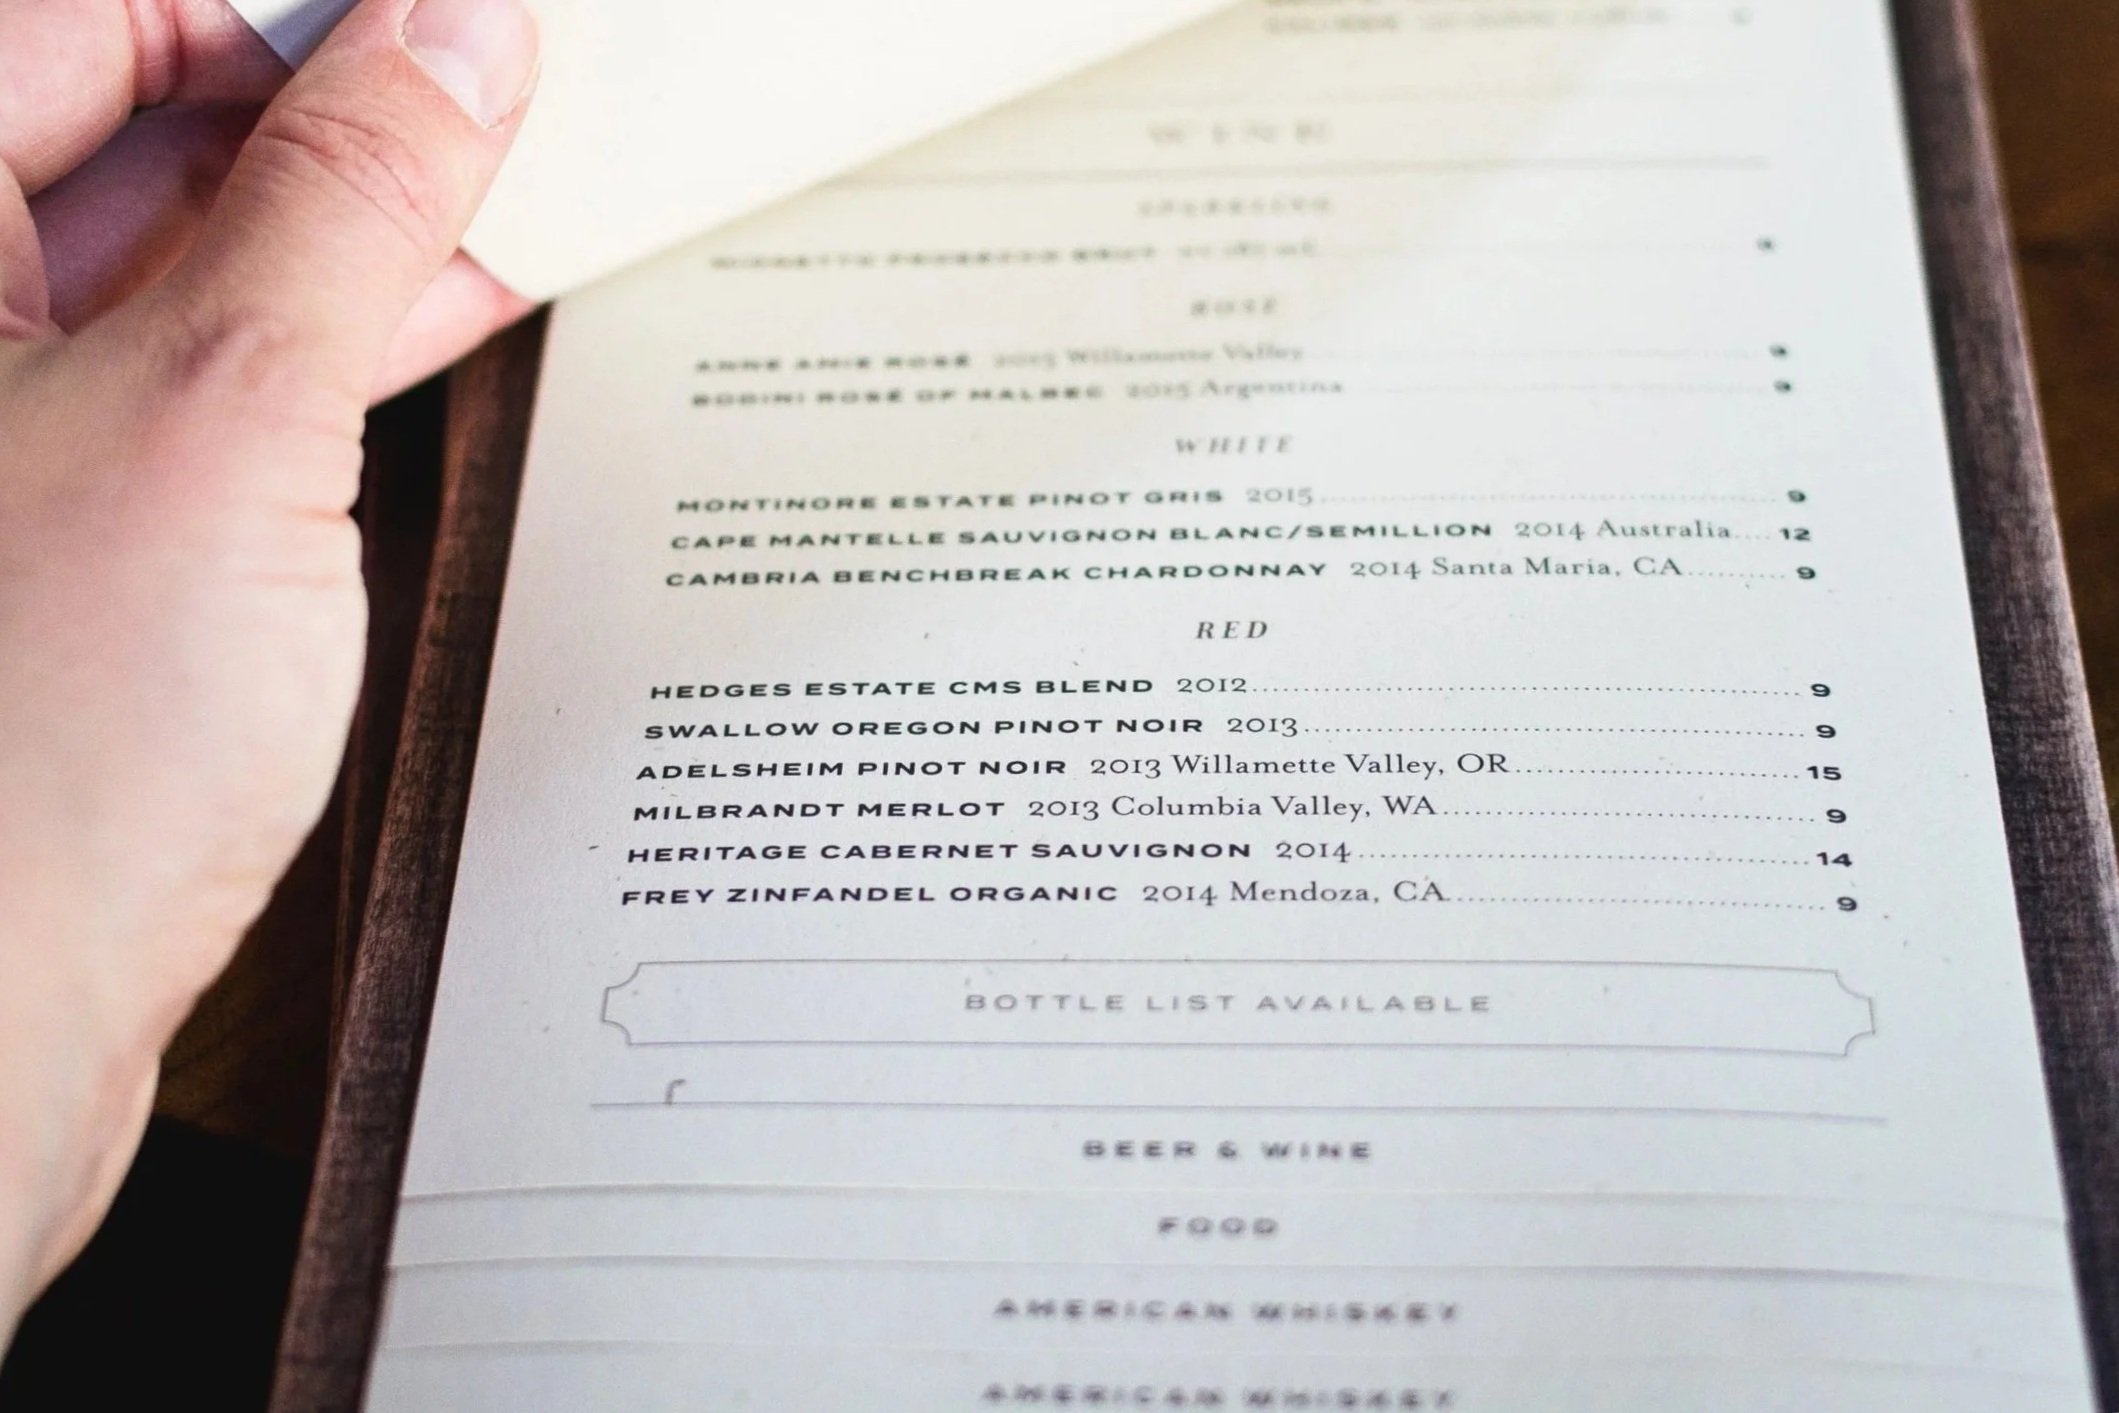 WINE
SPARKLING
PROSECCO BRUT
ROSÉ
ANNE AMIE ROSÉ 2015 Willamette Valley 9
BODINI ROSÉ OF MALBEC 2015 Argentina 9
WHITE
MONTINORE ESTATE PINOT GRIS 2015 9
CAPE MANTELLE SAUVIGNON BLANC/SEMILLION 2014 Australia.... 12
CAMBRIA BENCHBREAK CHARDONNAY 2014 Santa Maria, CA.......... 9
RED
HEDGES ESTATE CMS BLEND 2012.......... 9
SWALLOW OREGON PINOT NOIR 2013.......... 9
ADELSHEIM PINOT NOIR 2013 Willamette Valley, OR.......... 15
MILBRANDT MERLOT 2013 Columbia Valley, WA.......... 9
HERITAGE CABERNET SAUVIGNON 2014.......... 14
FREY ZINFANDEL ORGANIC 2014 Mendoza, CA.......... 9
BOTTLE LIST AVAILABLE
BEER & WINE
FOOD
AMERICAN WHISKEY
AMERICAN WHISKEY